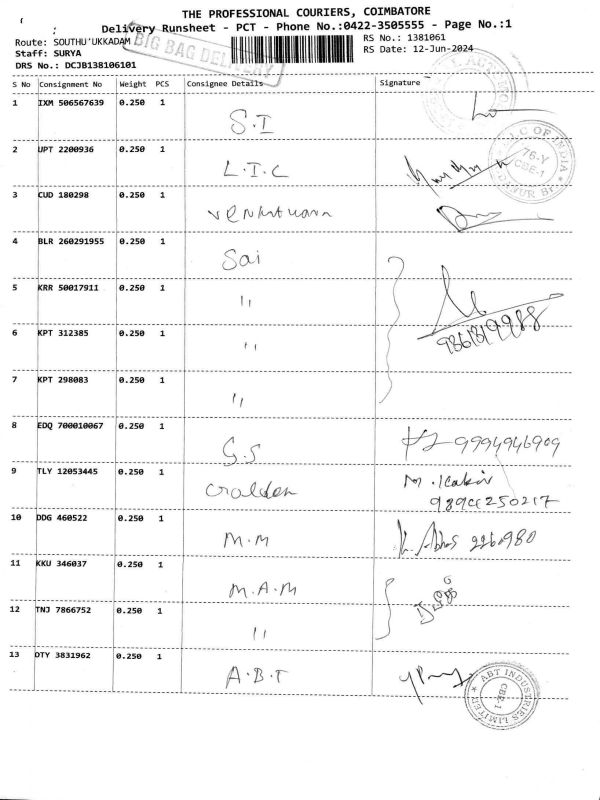 THE PROFESSIONAL COURIERS, COIMBATORE
Delivery Runsheet - PCT - Phone No.:0422-3505555 - Page No.:1
Route: SOUTHU'UKKADAM
BIG BAG DELIVERY
RS No.: 1381061
Staff: SURYA
RS Date: 12-Jun-2024
DRS No.: DCJB138106101
S No Consignment No Weight PCS Consignee Details Signature
1 IXM 506567639 0.250 1 S.I
2 UPT 2200936 0.250 1 L.I.C
L I C OF INDIA 76-Y CBE-1
3 CUD 180298 0.250 1
4 BLR 260291955 0.250 1 Sai
5 KRR 50017911 0.250 1 "
9361819988
6 KPT 312385 0.250 1 "
7 KPT 298083 0.250 1 "
8 EDQ 700010067 0.250 1 G.S 9994946909
9 TLY 12053445 0.250 1 M.
10 DDG 460522 0.250 1 M.M
11 KKU 346037 0.250 1 M.A.M
12 TNJ 7866752 0.250 1 "
13 DTY 3831962 0.250 1 A.B.T
ABT INDUSTRIES LIMITED CBE-1